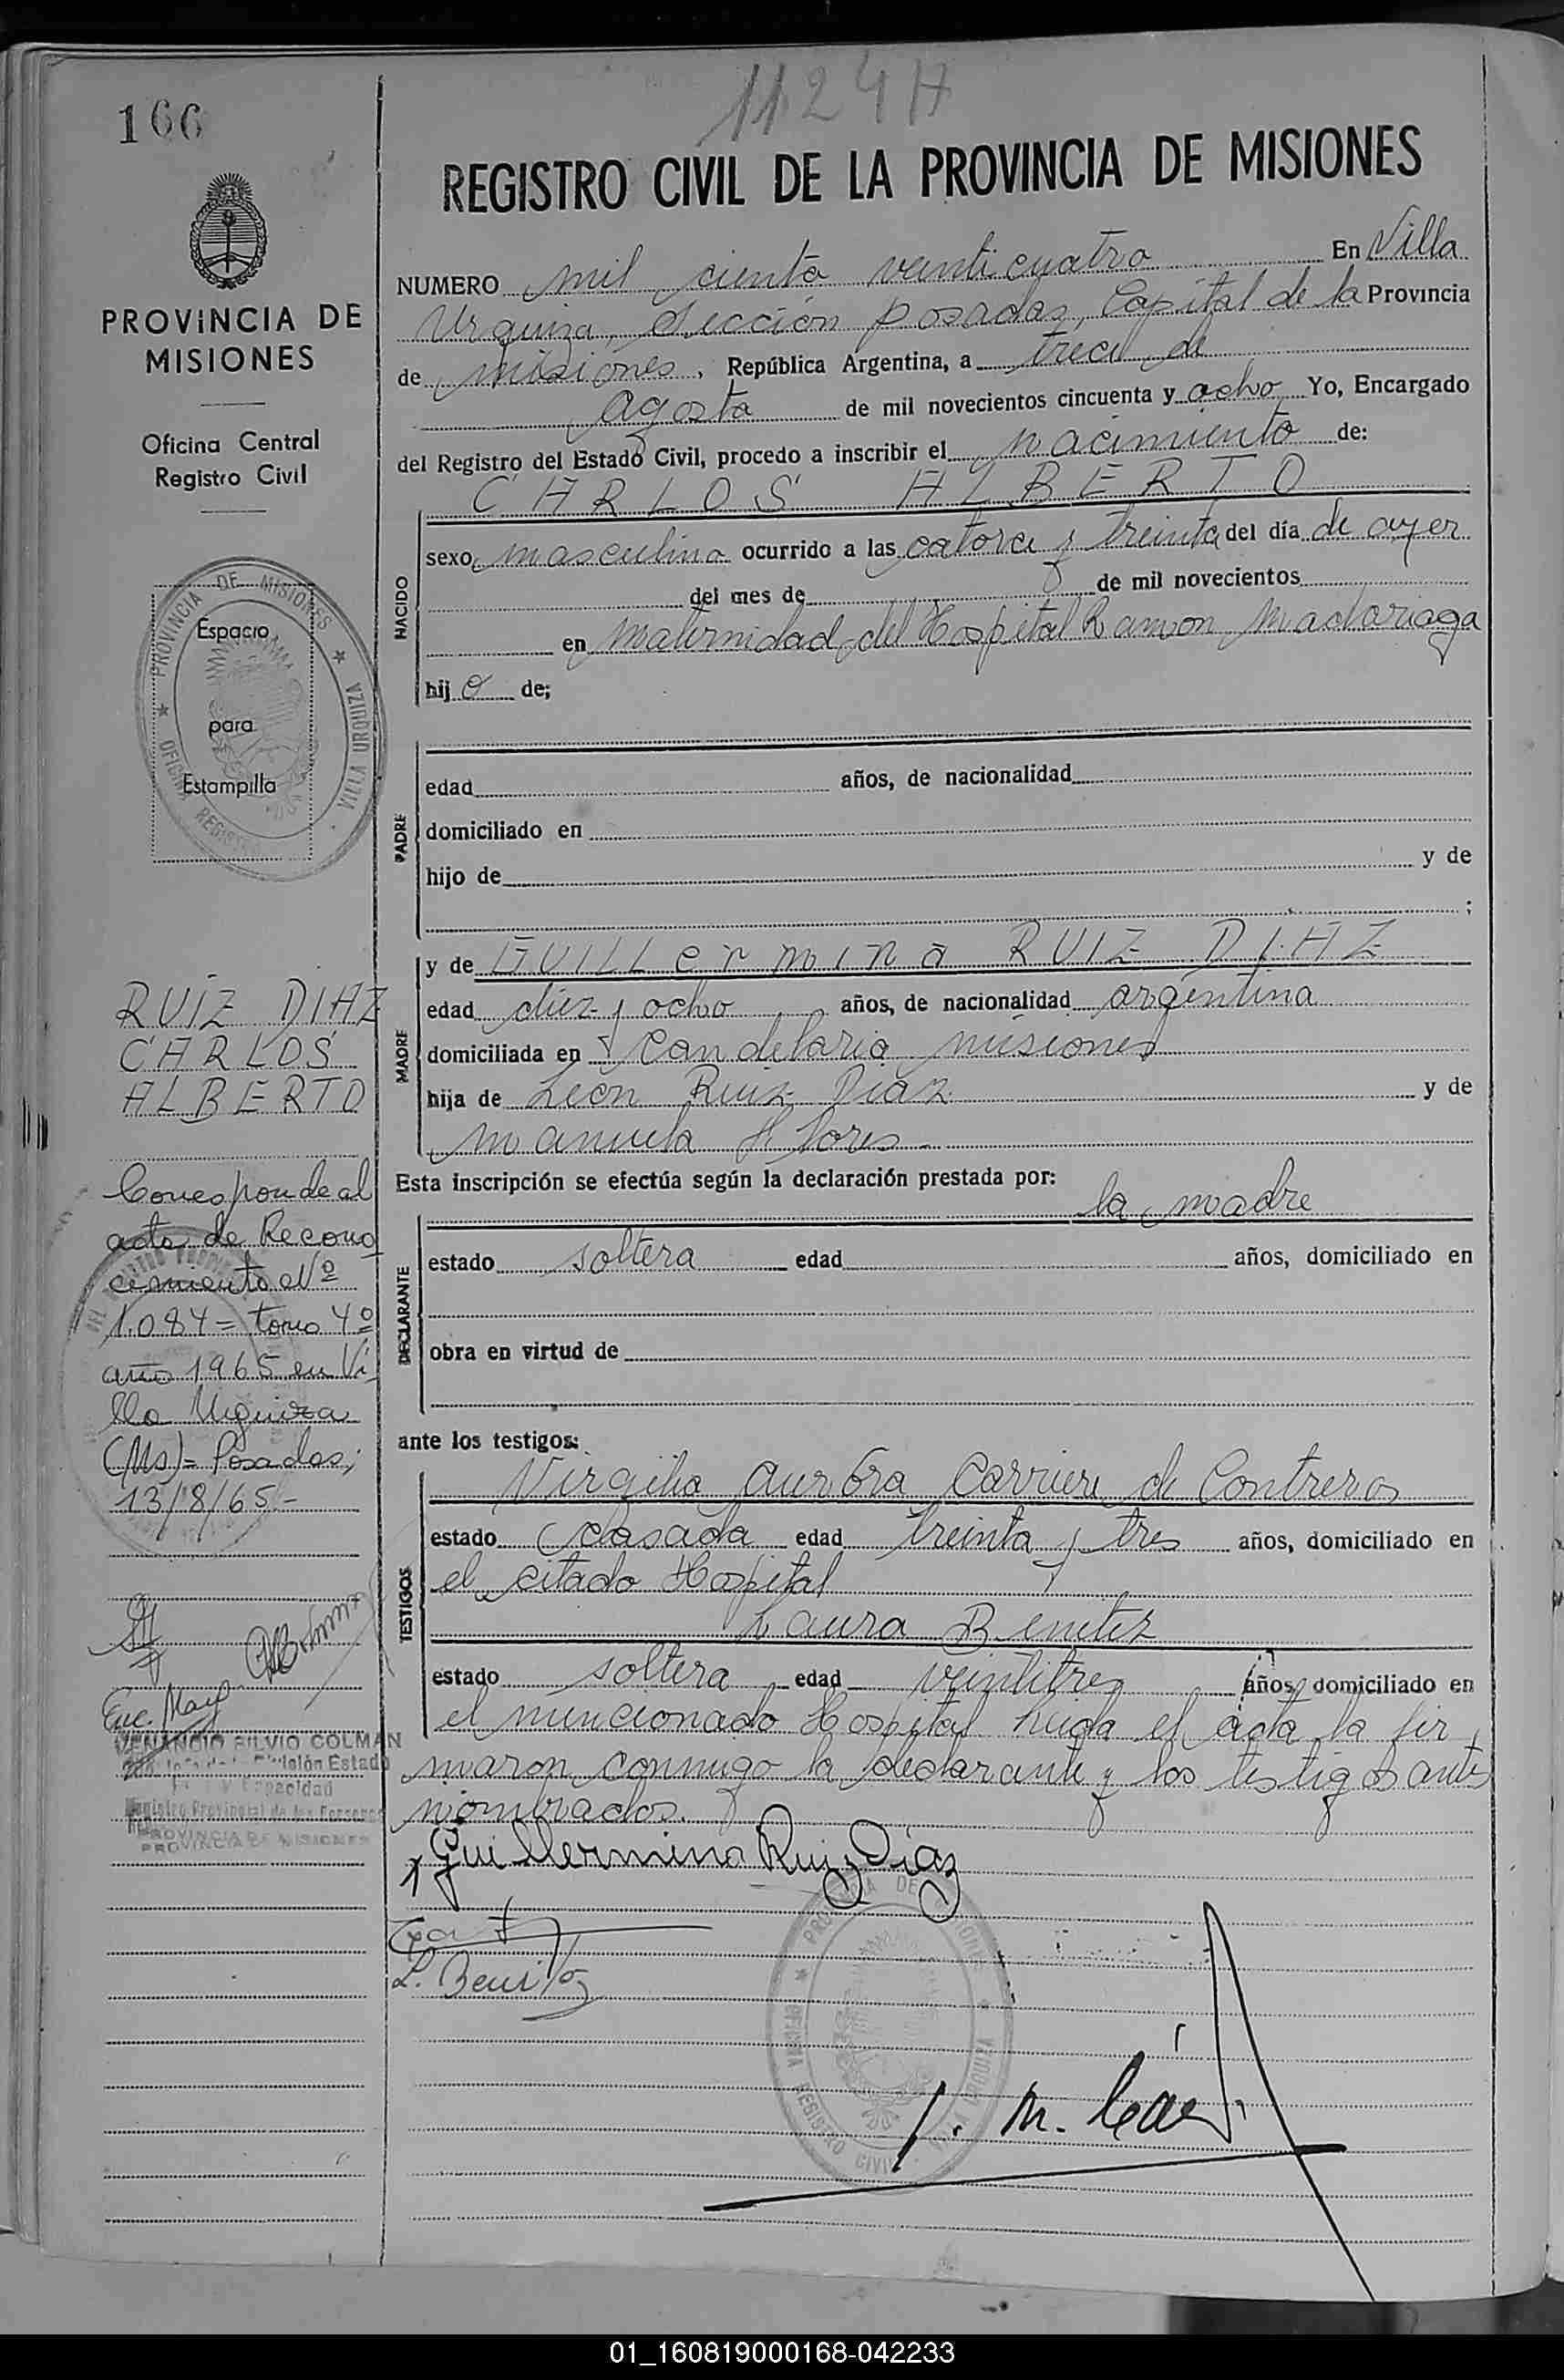 1124 A
166
REGISTRO CIVIL DE LA PROVINCIA DE MISIONES
PROVINCIA DE
MISIONES
Oficina Central
Registro Civil
PROVINCIA DE MISIONES
VILLA URQUIZA
OFICINA REGISTRO
Espacio
para
Estampilla
RUIZ DIAZ
CARLOS
ALBERTO
Corresponde al
acta de Recono
cimiento Nº
1.084 = tomo 4º
año 1965 en Vi
lla Urquiza
(Ms) = Posadas,
13/8/65 -
VENANCIO SILVIO COLMAN
División Estado
y Capacidad
Registro Provincial de las Personas
PROVINCIA DE MISIONES
NUMERO mil ciento veinticuatro En Villa
Urquiza, Sección posadas, Capital de la Provincia
de misiones, República Argentina, a trece de
agosto de mil novecientos cincuenta y ocho Yo, Encargado
del Registro del Estado Civil, procedo a inscribir el nacimiento de:
NACIDO
CARLOS ALBERTO
sexo masculino ocurrido a las catorce y treinta del día de ayer
del mes de de mil novecientos
en maternidad del Hospital Ramon Madariaga
hijo de;
PADRE
edad años, de nacionalidad
domiciliado en
hijo de y de
;
MADRE
y de GUILLermina RUIZ DIAZ
edad diez y ocho años, de nacionalidad argentina
domiciliada en Candelaria misiones
hija de Leon Ruiz Diaz y de
manuela Flores
Esta inscripción se efectúa según la declaración prestada por:
DECLARANTE
la madre
estado soltera edad años, domiciliado en
obra en virtud de
ante los testigos:
TESTIGOS
Virgilia Aurora Carriere de Contreras
estado Casada edad treinta y tres años, domiciliado en
el citado Hospital
Laura Benitez
estado soltera edad veintitres años, domiciliado en
el mencionado Hospital leida el acta la fir
maron conmigo la declarante y los testigos antes
nombrados.
Guillermina Ruiz Diaz
L. Benitez
PROVINCIA DE MISIONES
VILLA URQUIZA
OFICINA REGISTRO CIVIL
01_160819000168-042233